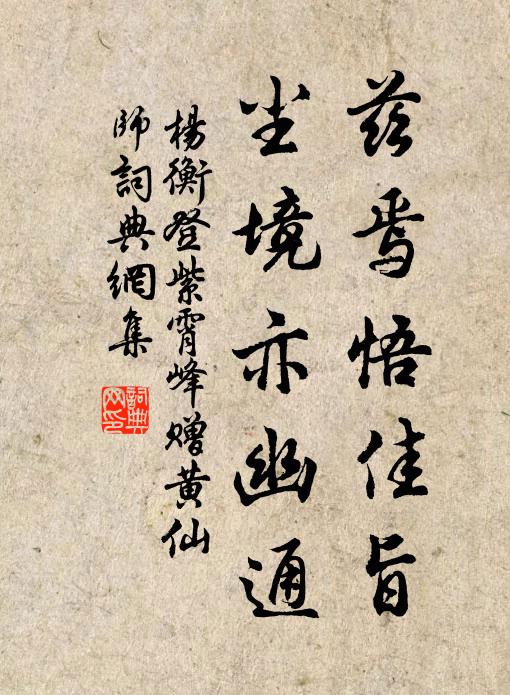 茲焉悟佳旨
尘境亦幽通
楊衡登紫霄峰贈黄仙
師詞典網集
詞典
网印